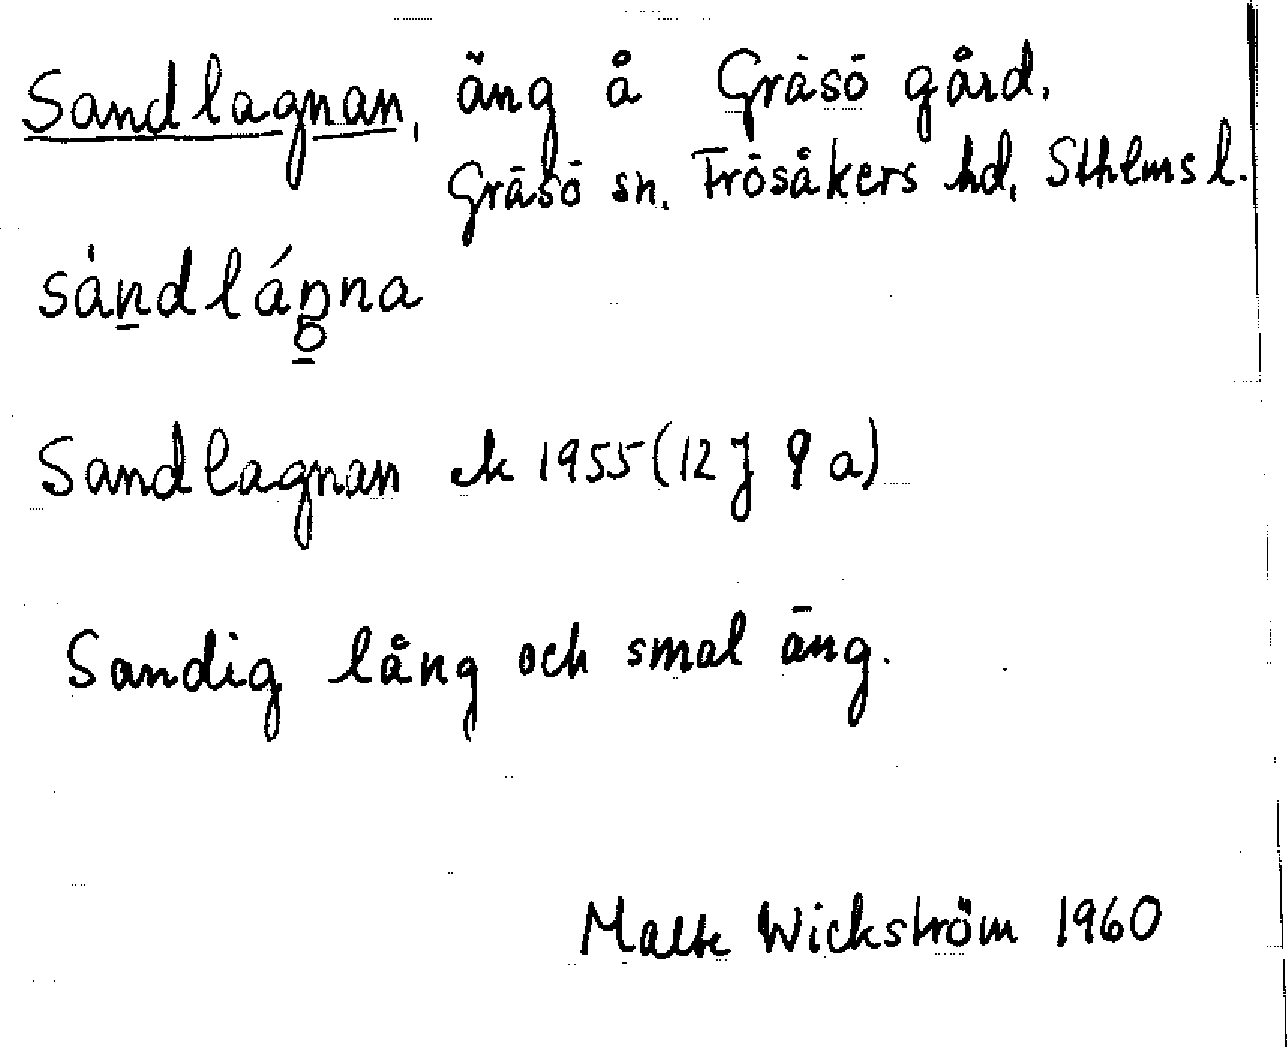 Sandlagnan, äng å Gräsö gård,
Gräsö sn, Frösåkers hd, Sthlms l.
sàndláŋna
Sandlagnan ek 1955 (12 J 9 a)
Sandig lång och smal äng.
Malte Wickström 1960